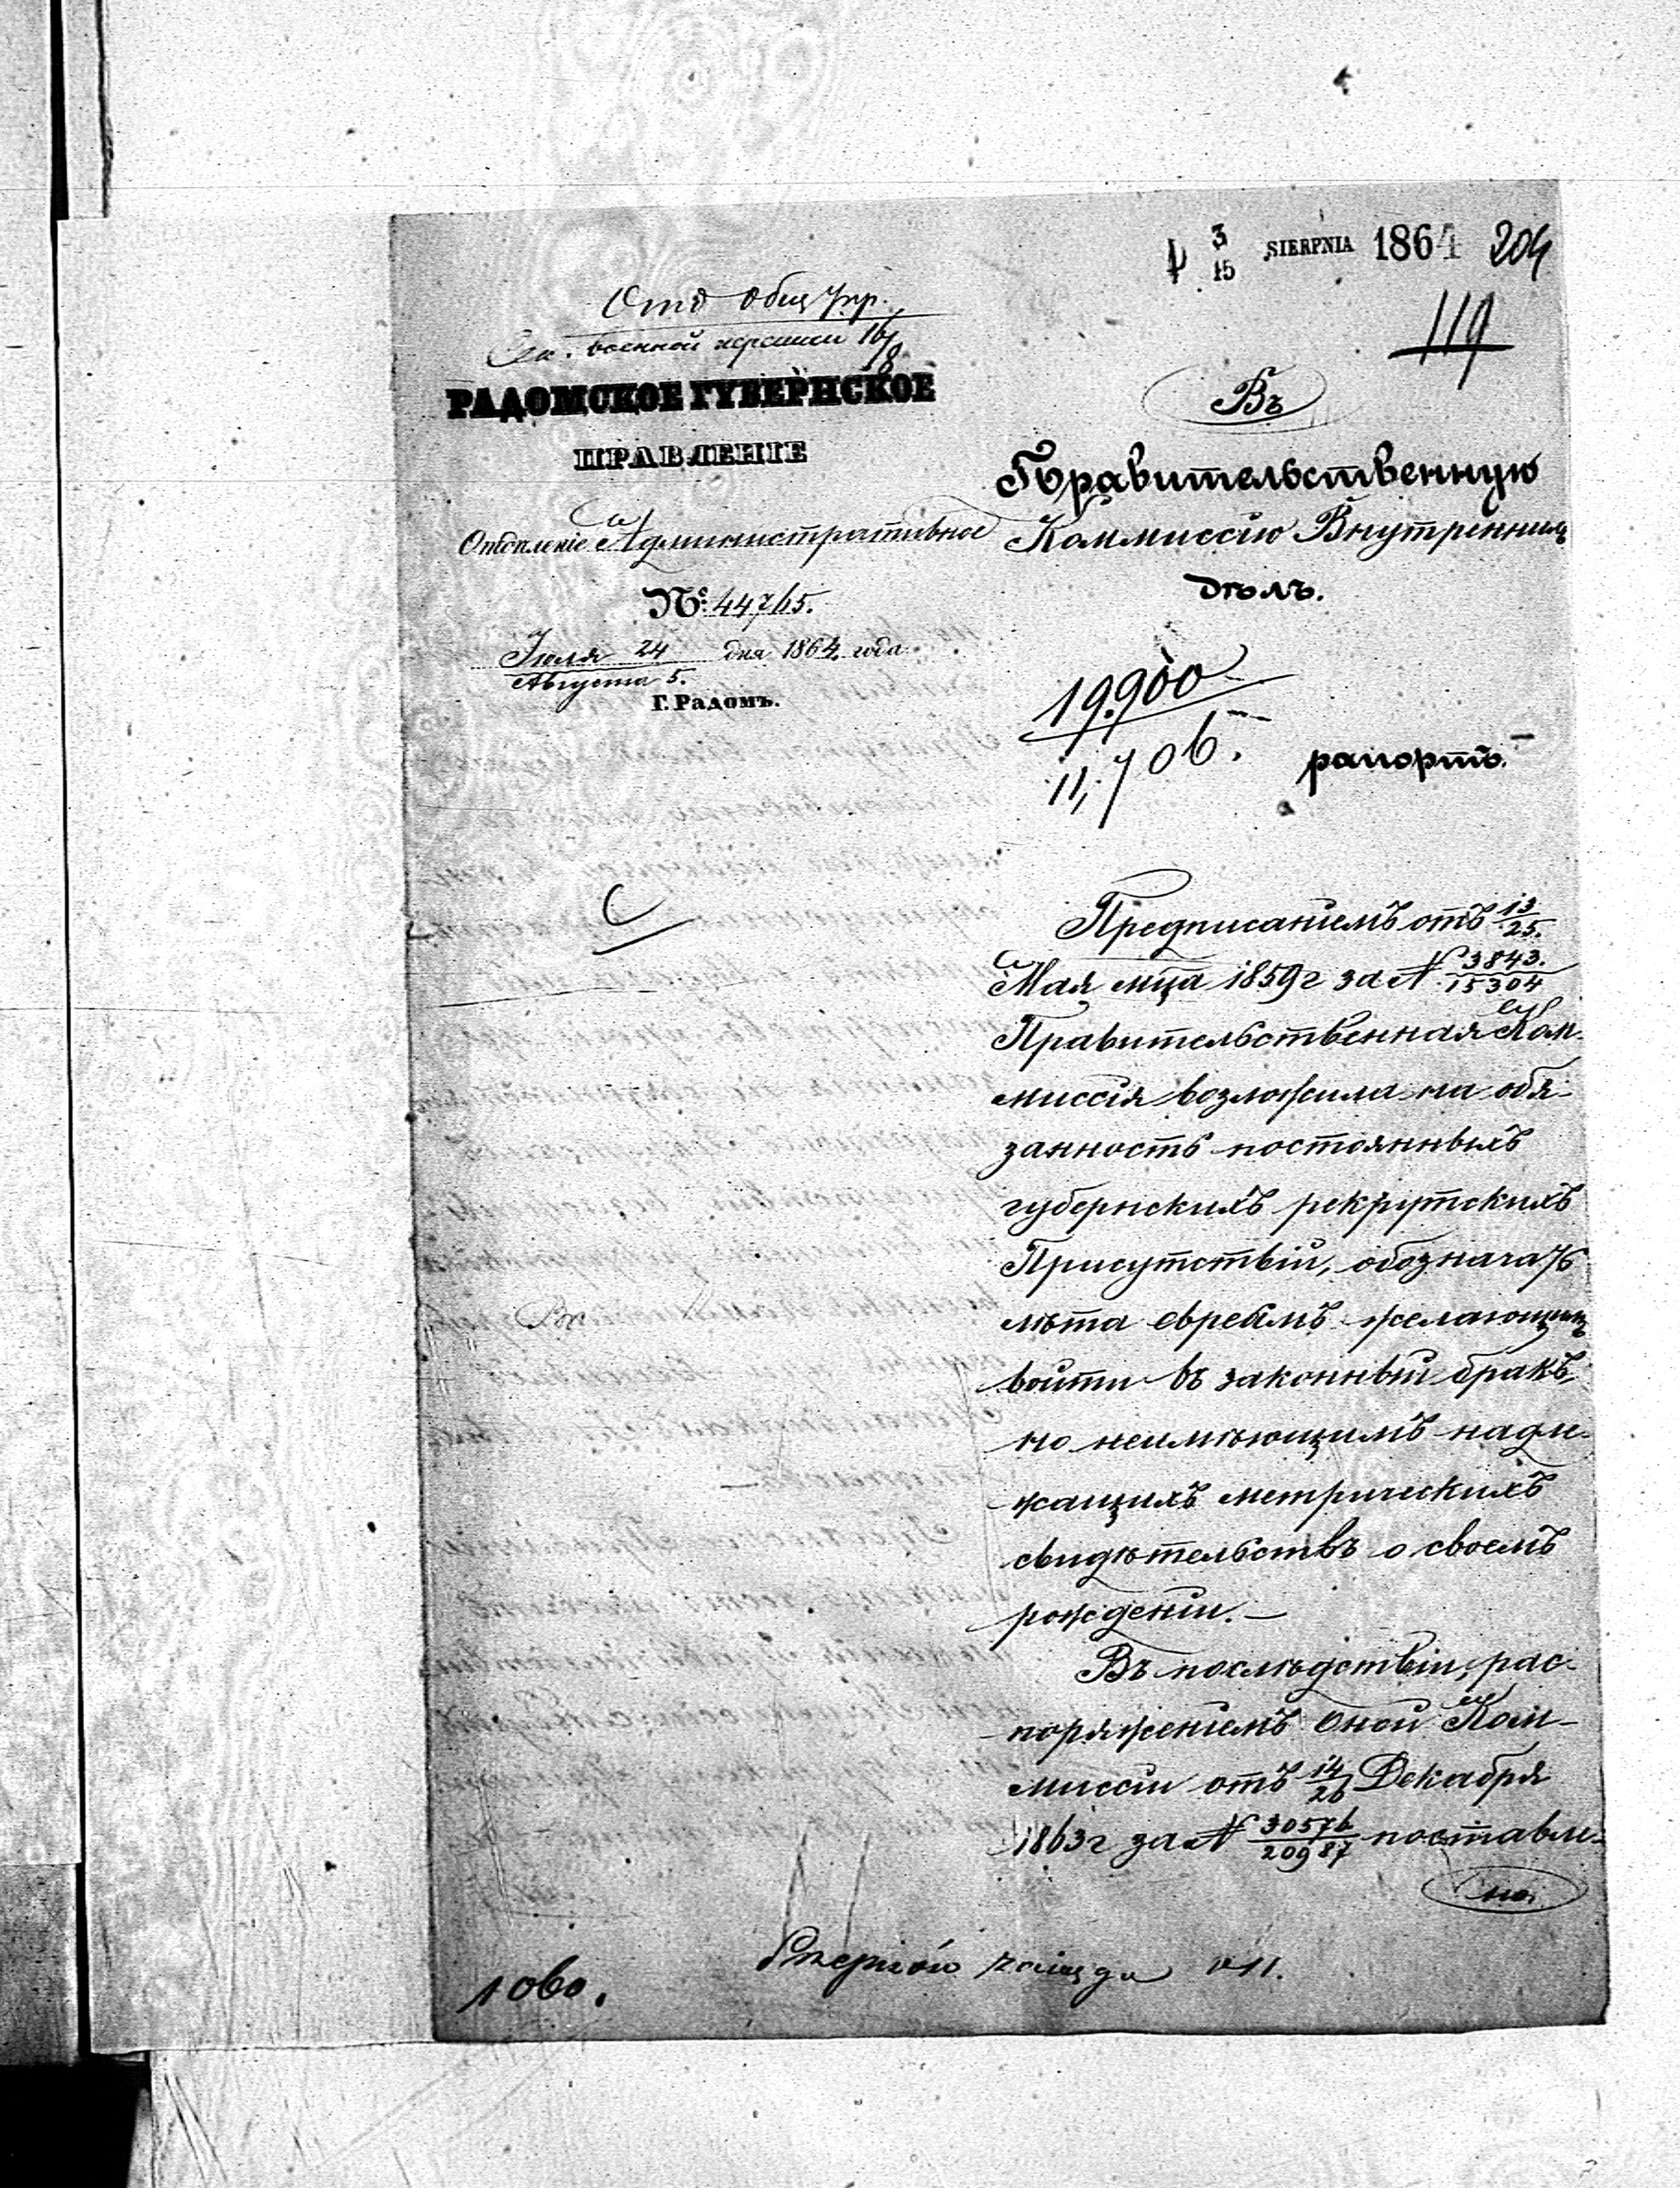 3
15 SIERPNIA 1864 204
119
Отд Общ Упр.
Сек. военной 16/8
РАДОМСКОЕ ГУБЕРНСКОЕ
ПРАВЛЕНІЕ
Отдѣленіе Административное
№ 44765.
Іюля 24 дня 1864 года
Августа 5.
Г. Радомъ.
Въ
Правительственную
Коммиссію Внутреннихъ
дѣлъ.
19.900
11,706.
рапортъ.
Предписаніемъ отъ 13/25.
Мая мца 1859 г за № 3843./15304
Правительственная Ком-
миссія возложила на обя-
занность постоянныхъ
губернскихъ рекрутскихъ
Присутствій, обозначать
лѣта евреямъ желающимъ
войти въ законный бракъ,
но неимѣющимъ надле-
жащихъ метрическихъ
свидѣтельствъ о своемъ
рожденіи. —
Въ послѣдствіи, рас-
поряженіемъ оной Ком-
миссіи отъ 14/26 Декабря
1863 г за № 30576/20987 поставле-
но
1060.